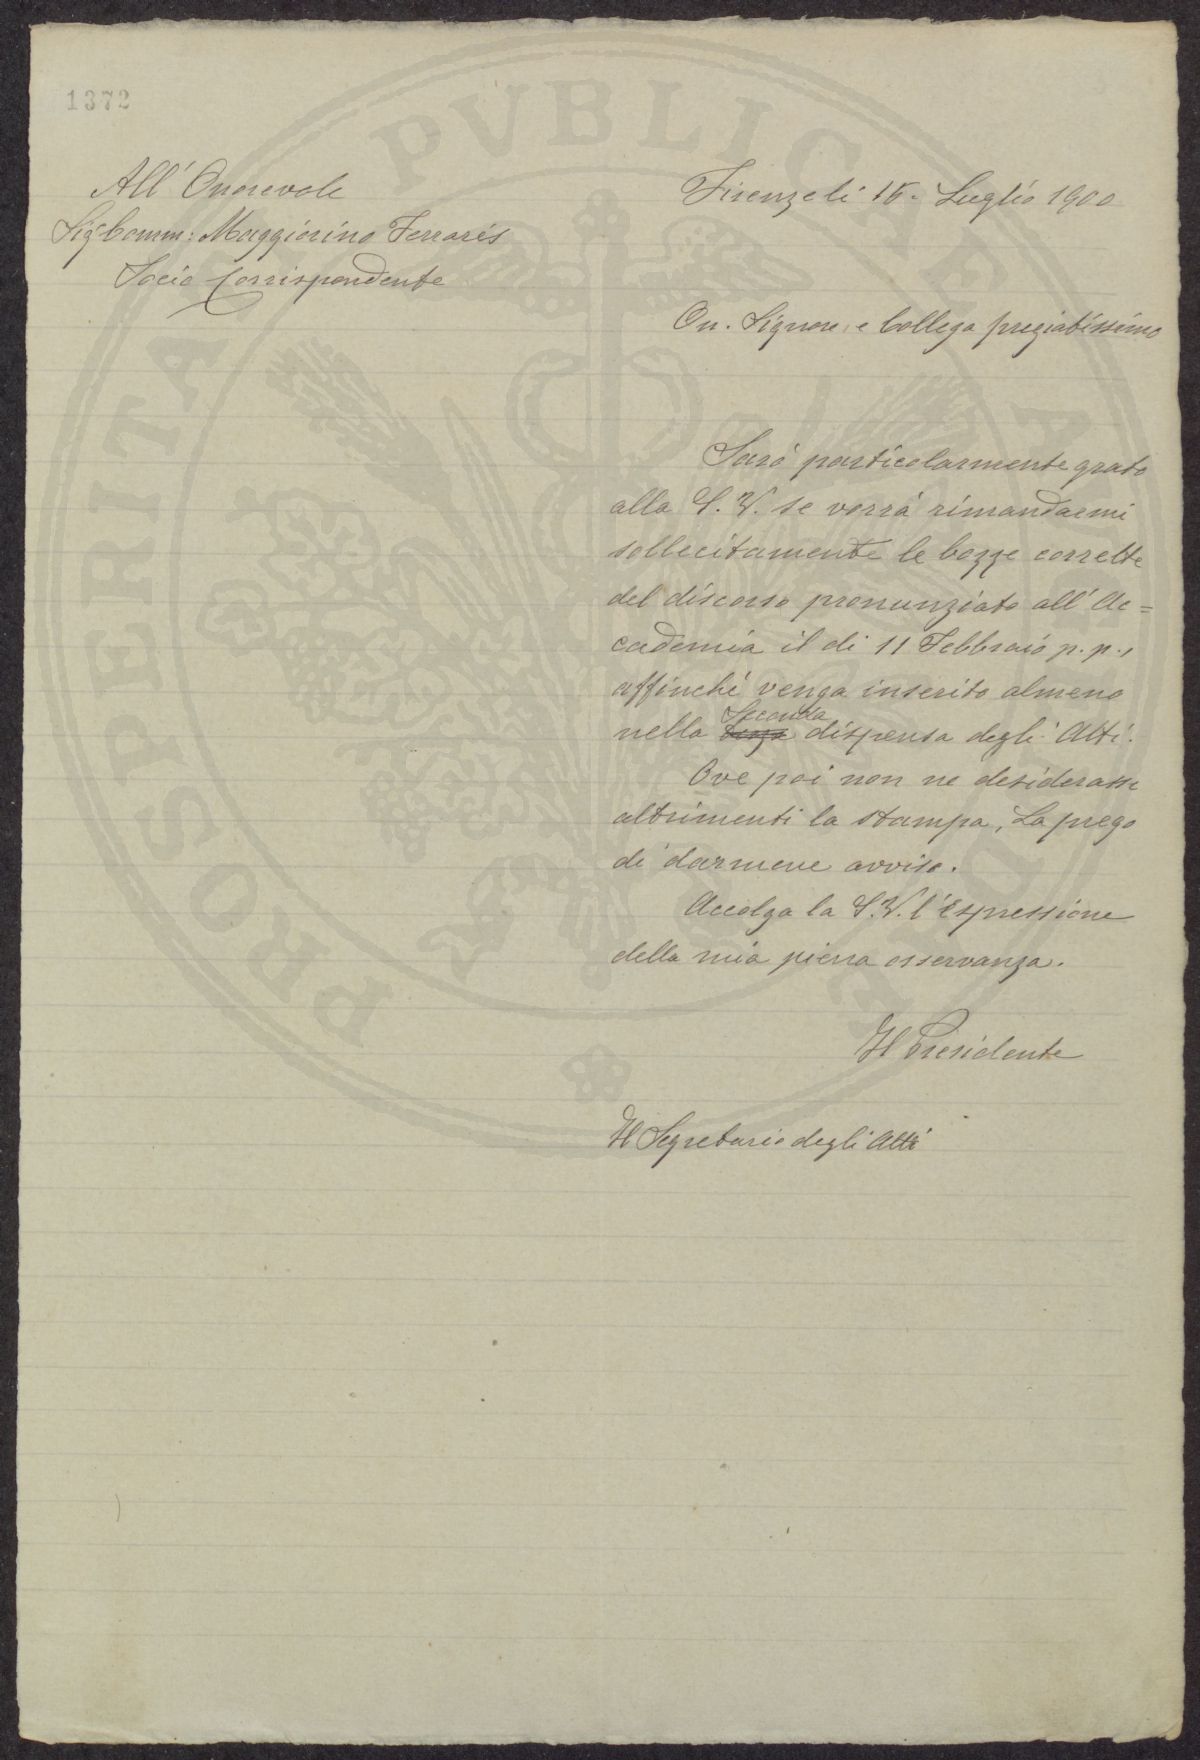 1372
All' Onorevole
Sig Comm: Maggiorino Ferraris
Socio Corrispondente
Firenze li 15. Luglio 1900
On. Signore e Collega pregiatissimo
Sarò particolarmente grato
alla S. V. se vorrà rimandarmi
sollecitamente le bozze corrette
del discorso pronunziato all' Ac=
cademia il di 11 Febbraio p. p.,
affinché venga inserito almeno
Seconda
nella terza dispensa degli Atti.
Ove poi non ne desiderasse
altrimenti la stampa, La prego
di darmene avviso.
Accolga la S. V. l'espressione
della mia piena osservanza.
Il Presidente
Il Segretario degli Atti
PROSPERITATI PVBLICAE AVGENDAE